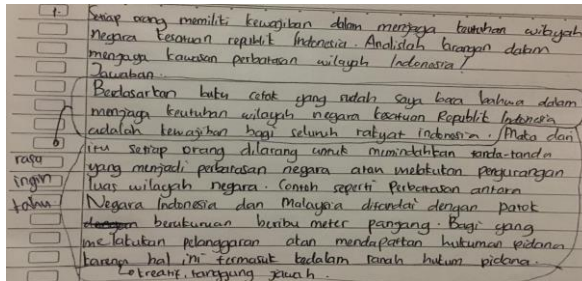 1. Setiap orang memiliki kewajiban dalam menjaga keutuhan wilayah
negara kesatuan republik Indonesia. Analislah larangan dalam
menjaga kawasan perbatasan wilayah Indonesia!
Jawaban.
Berdasarkan buku cetak yang sudah saya baca bahwa dalam
menjaga keutuhan wilayah negara kesatuan Republik Indonesia
adalah kewajiban bagi seluruh rakyat indonesia. Maka dari
itu setiap orang dilarang untuk memindahkan tanda-tanda
yang menjadi perbatasan negara atau melakukan pengurangan
luas wilayah negara. Contoh seperti Perbatasan antara
Negara Indonesia dan Malaysia ditandai dengan patok
berukuran beribu meter panjang. Bagi yang
melakukan pelanggaran akan mendapatkan hukuman pidana
karena hal ini termasuk kedalam ranah hukum pidana.
kreatif, tanggung jawab.
rasa
ingin
tahu